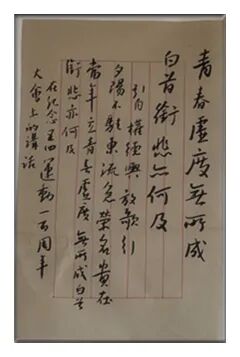 青春虛度無所成
白首銜悲亦何及
引自權德輿放歌行
夕陽不駐東流急榮名貴在
當年立青春虛度無所成白首
銜悲亦何及
在纪念五四運動一百周年
大會上的講話